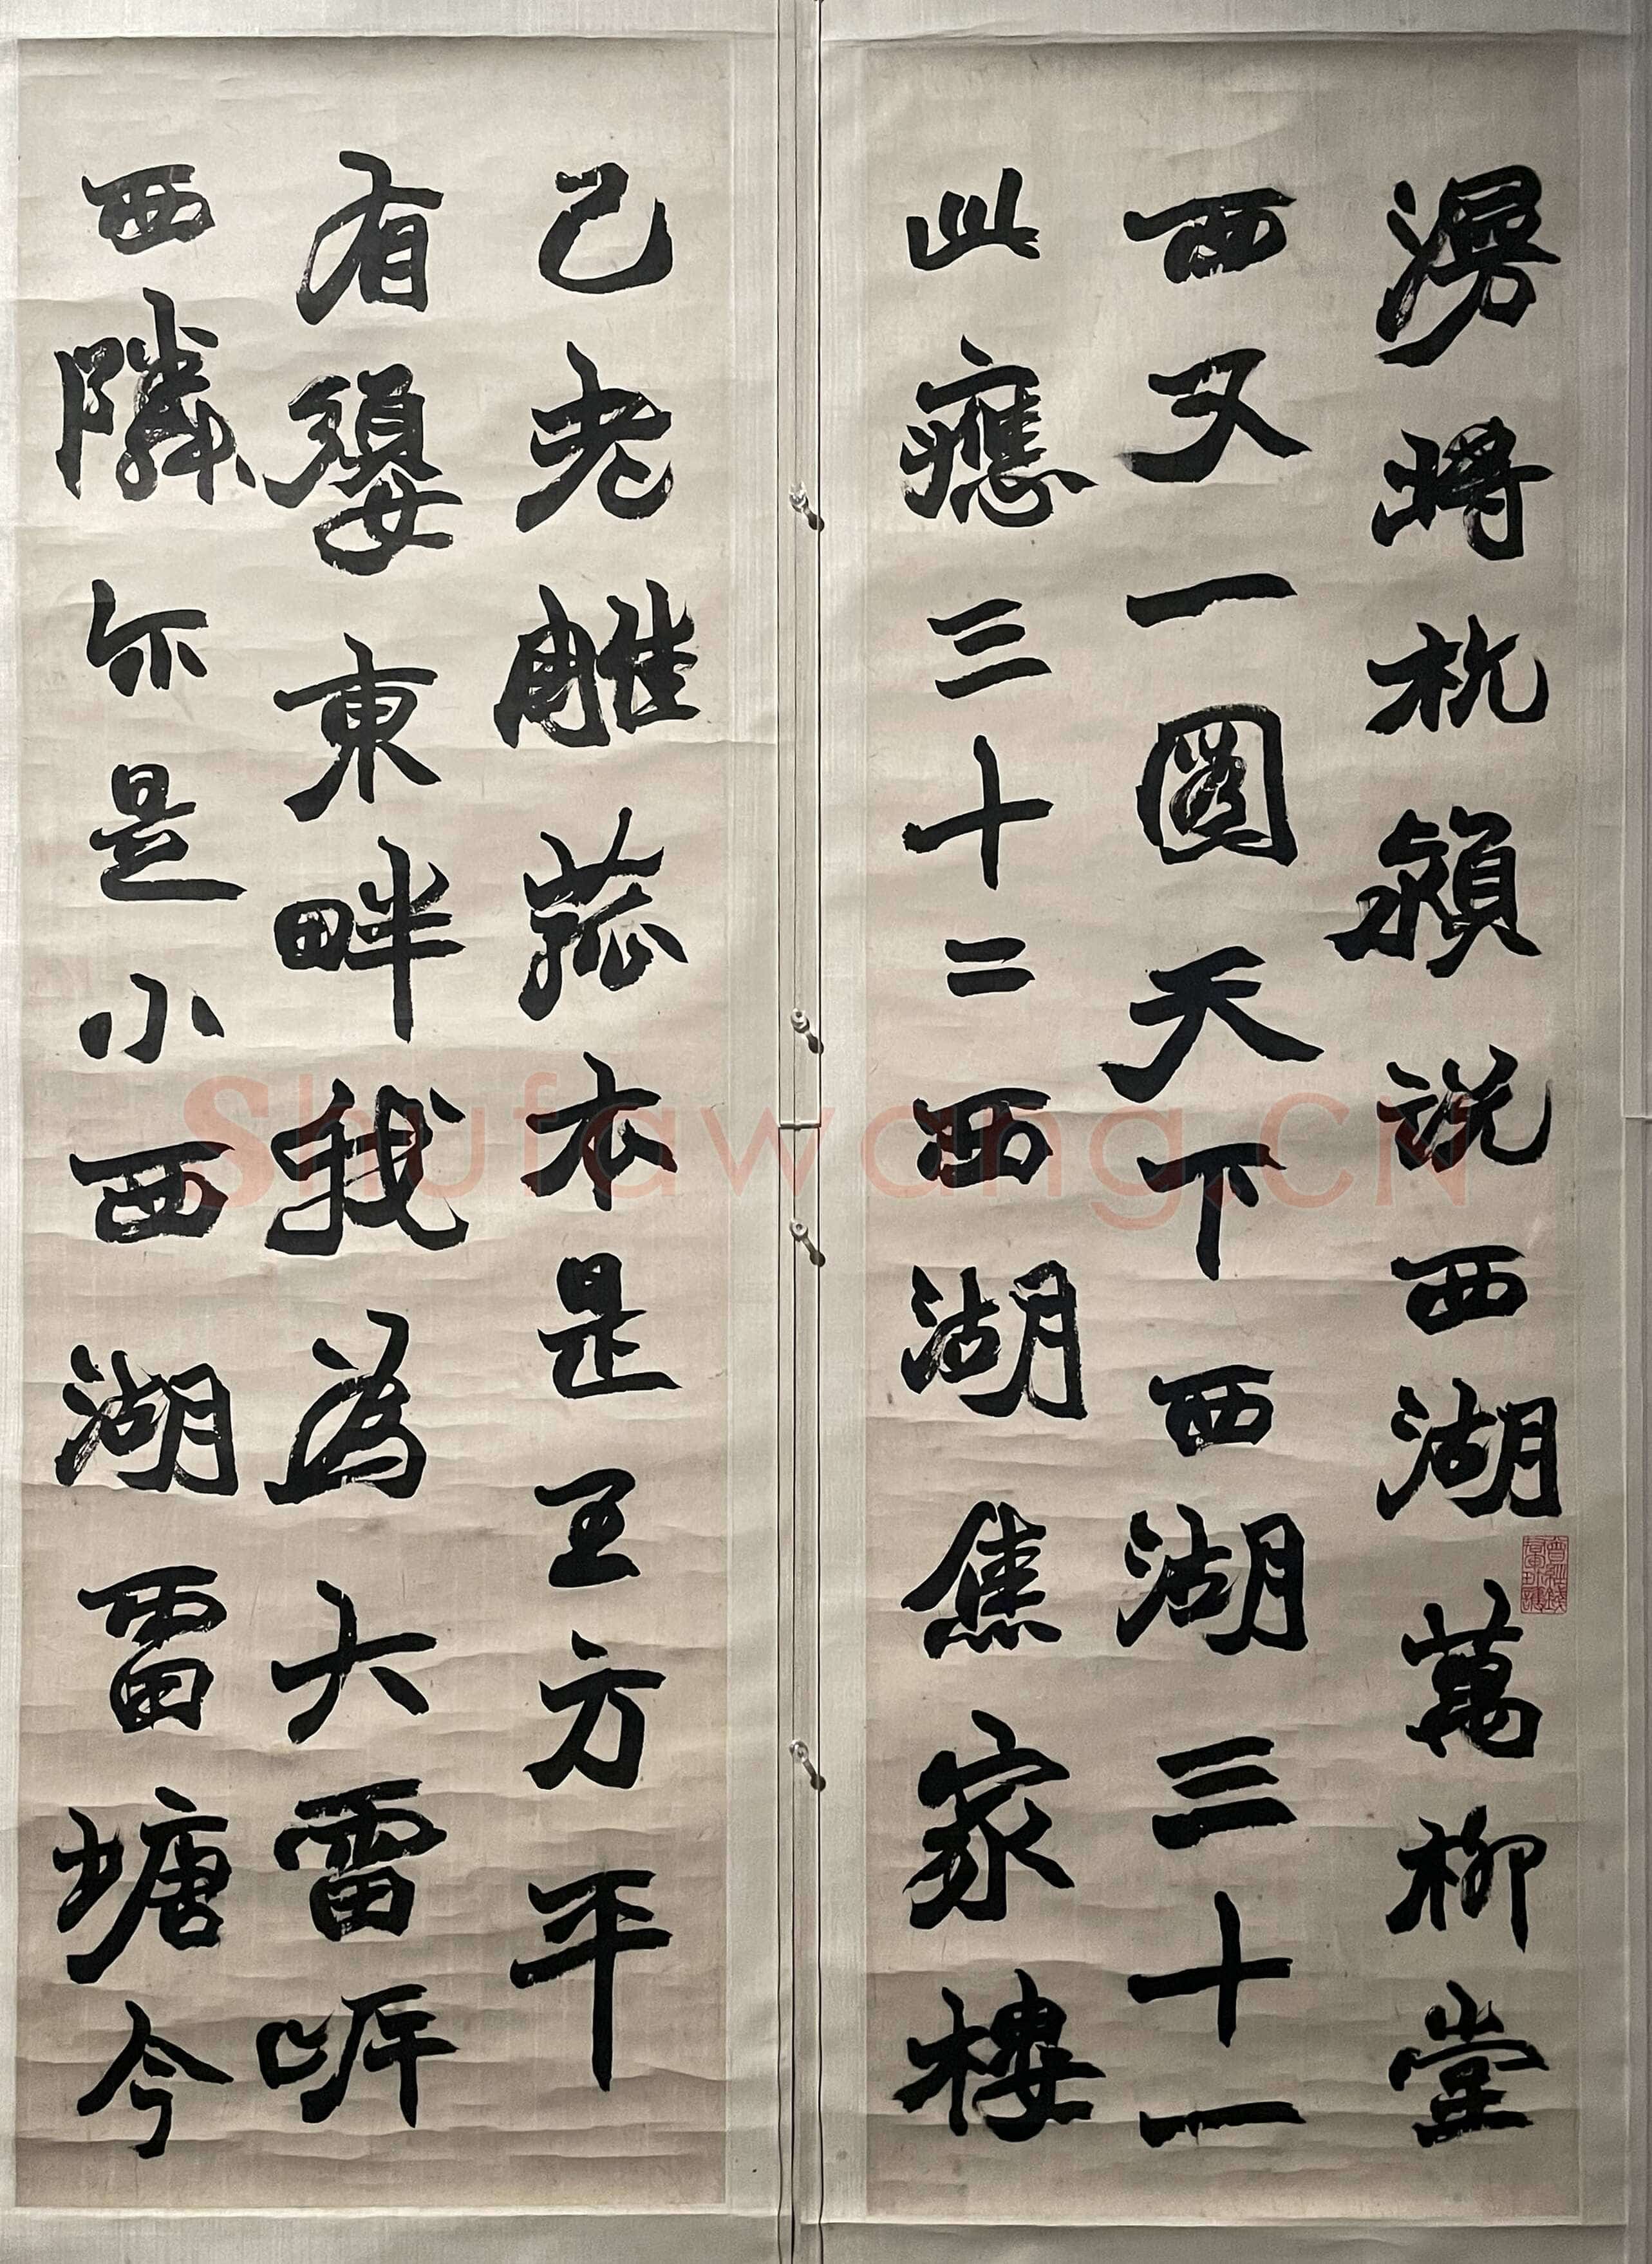 漫將杭潁說西湖萬柳堂
西又一圖天下西湖三十一
此應三十二西湖焦家樓
已老雕菰本是王方平
有嬃東畔我為大雷岸
西隣亦是小西湖雷塘今
Shufawang.CN